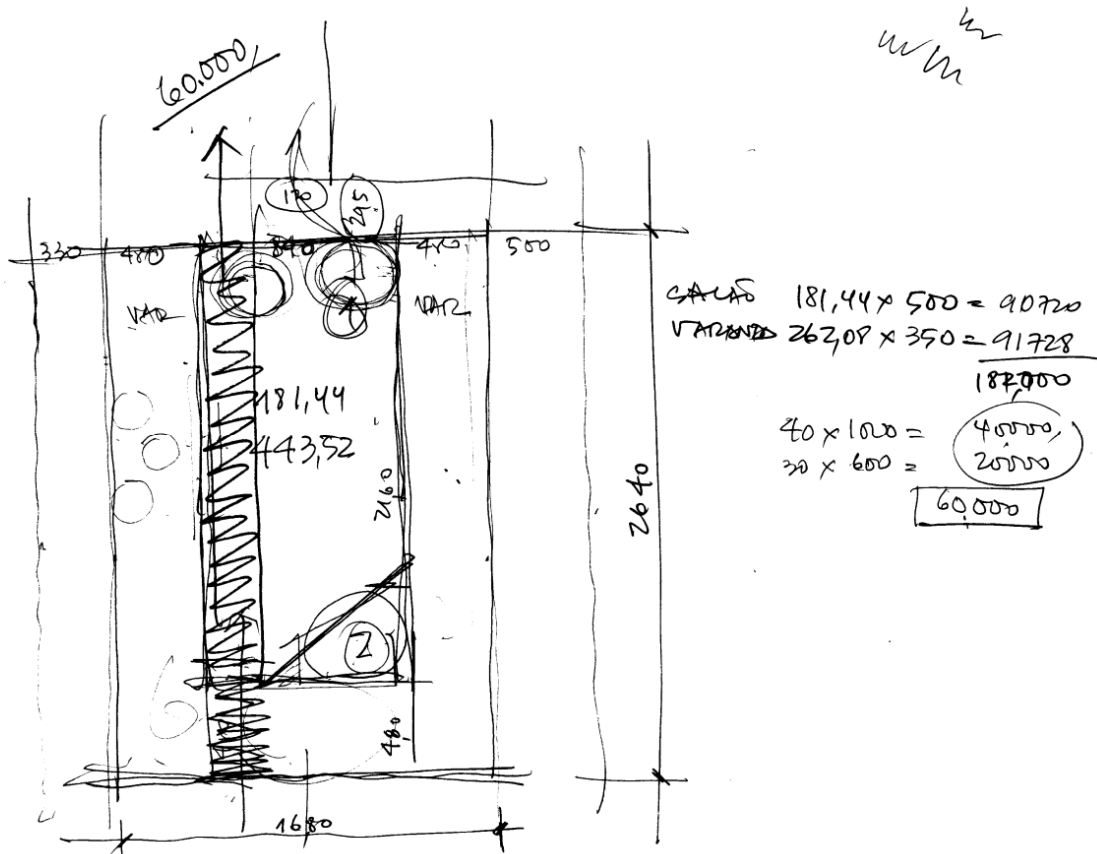 60.000,
170
395
330 480 840 480 500
VAR VAR
181,44
443,52
2160
2640
2
480
1680
SALÃO 181,44 x 500 = 90720
VARANDA 262,08 x 350 = 91728
40 x 1000 = 40000,
30 x 600 = 20000
60,000